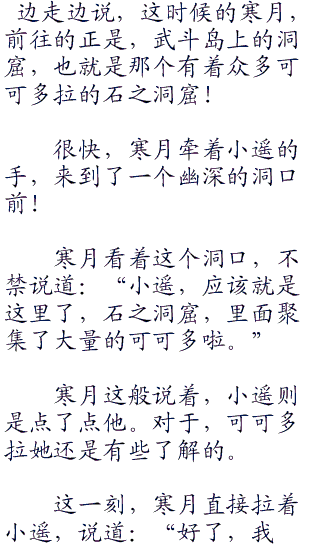 边走边说，这时候的寒月，
前往的正是，武斗岛上的洞
窟，也就是那个有着众多可
可多拉的石之洞窟！
很快，寒月牵着小遥的
手，来到了一个幽深的洞口
前！
寒月看着这个洞口，不
禁说道：“小遥，应该就是
这里了，石之洞窟，里面聚
集了大量的可可多啦。”
寒月这般说着，小遥则
是点了点他。对于，可可多
拉她还是有些了解的。
这一刻，寒月直接拉着
小遥，说道：“好了，我